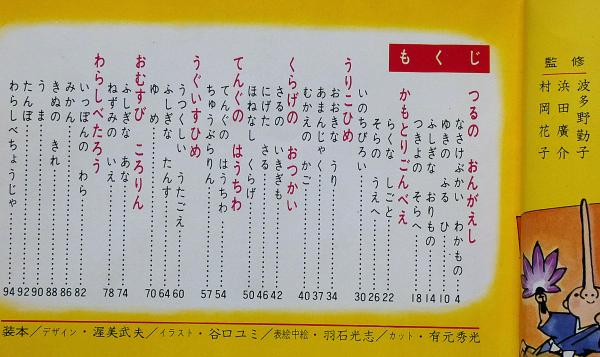 もくじ
つるの おんがえし
なさけぶかい わかもの……4
ゆきの ふる ひ……10
ふしぎな おりもの……14
つきよの そらへ……18
かもとりごんべえ
らくな しごと……22
そらの うえへ……26
いのちびろい……30
うりこひめ
おおきな うり……34
あまんじゃく……37
むかえの かご……40
くらげの おつかい
さるの いきぎも……42
にげた さる……46
ほねなし くらげ……50
てんぐの はうちわ
てんぐの はうちわ……54
ちゅうぶらりん……57
うぐいすひめ
うつくしい うたごえ……60
ふしぎな たんす……64
ゆめ……70
おむすび ころりん
ふしぎな あな……74
ねずみの いえ……78
わらしべたろう
いっぽんの わら……82
みかん……86
きぬの きれ……88
うま……90
たんぼ……92
わらしべちょうじゃ……94
監修
波多野勤子
浜田廣介
村岡花子
装本/デザイン・渥美武夫/イラスト・谷口ユミ/表絵中絵・羽石光志/カット・有元秀光